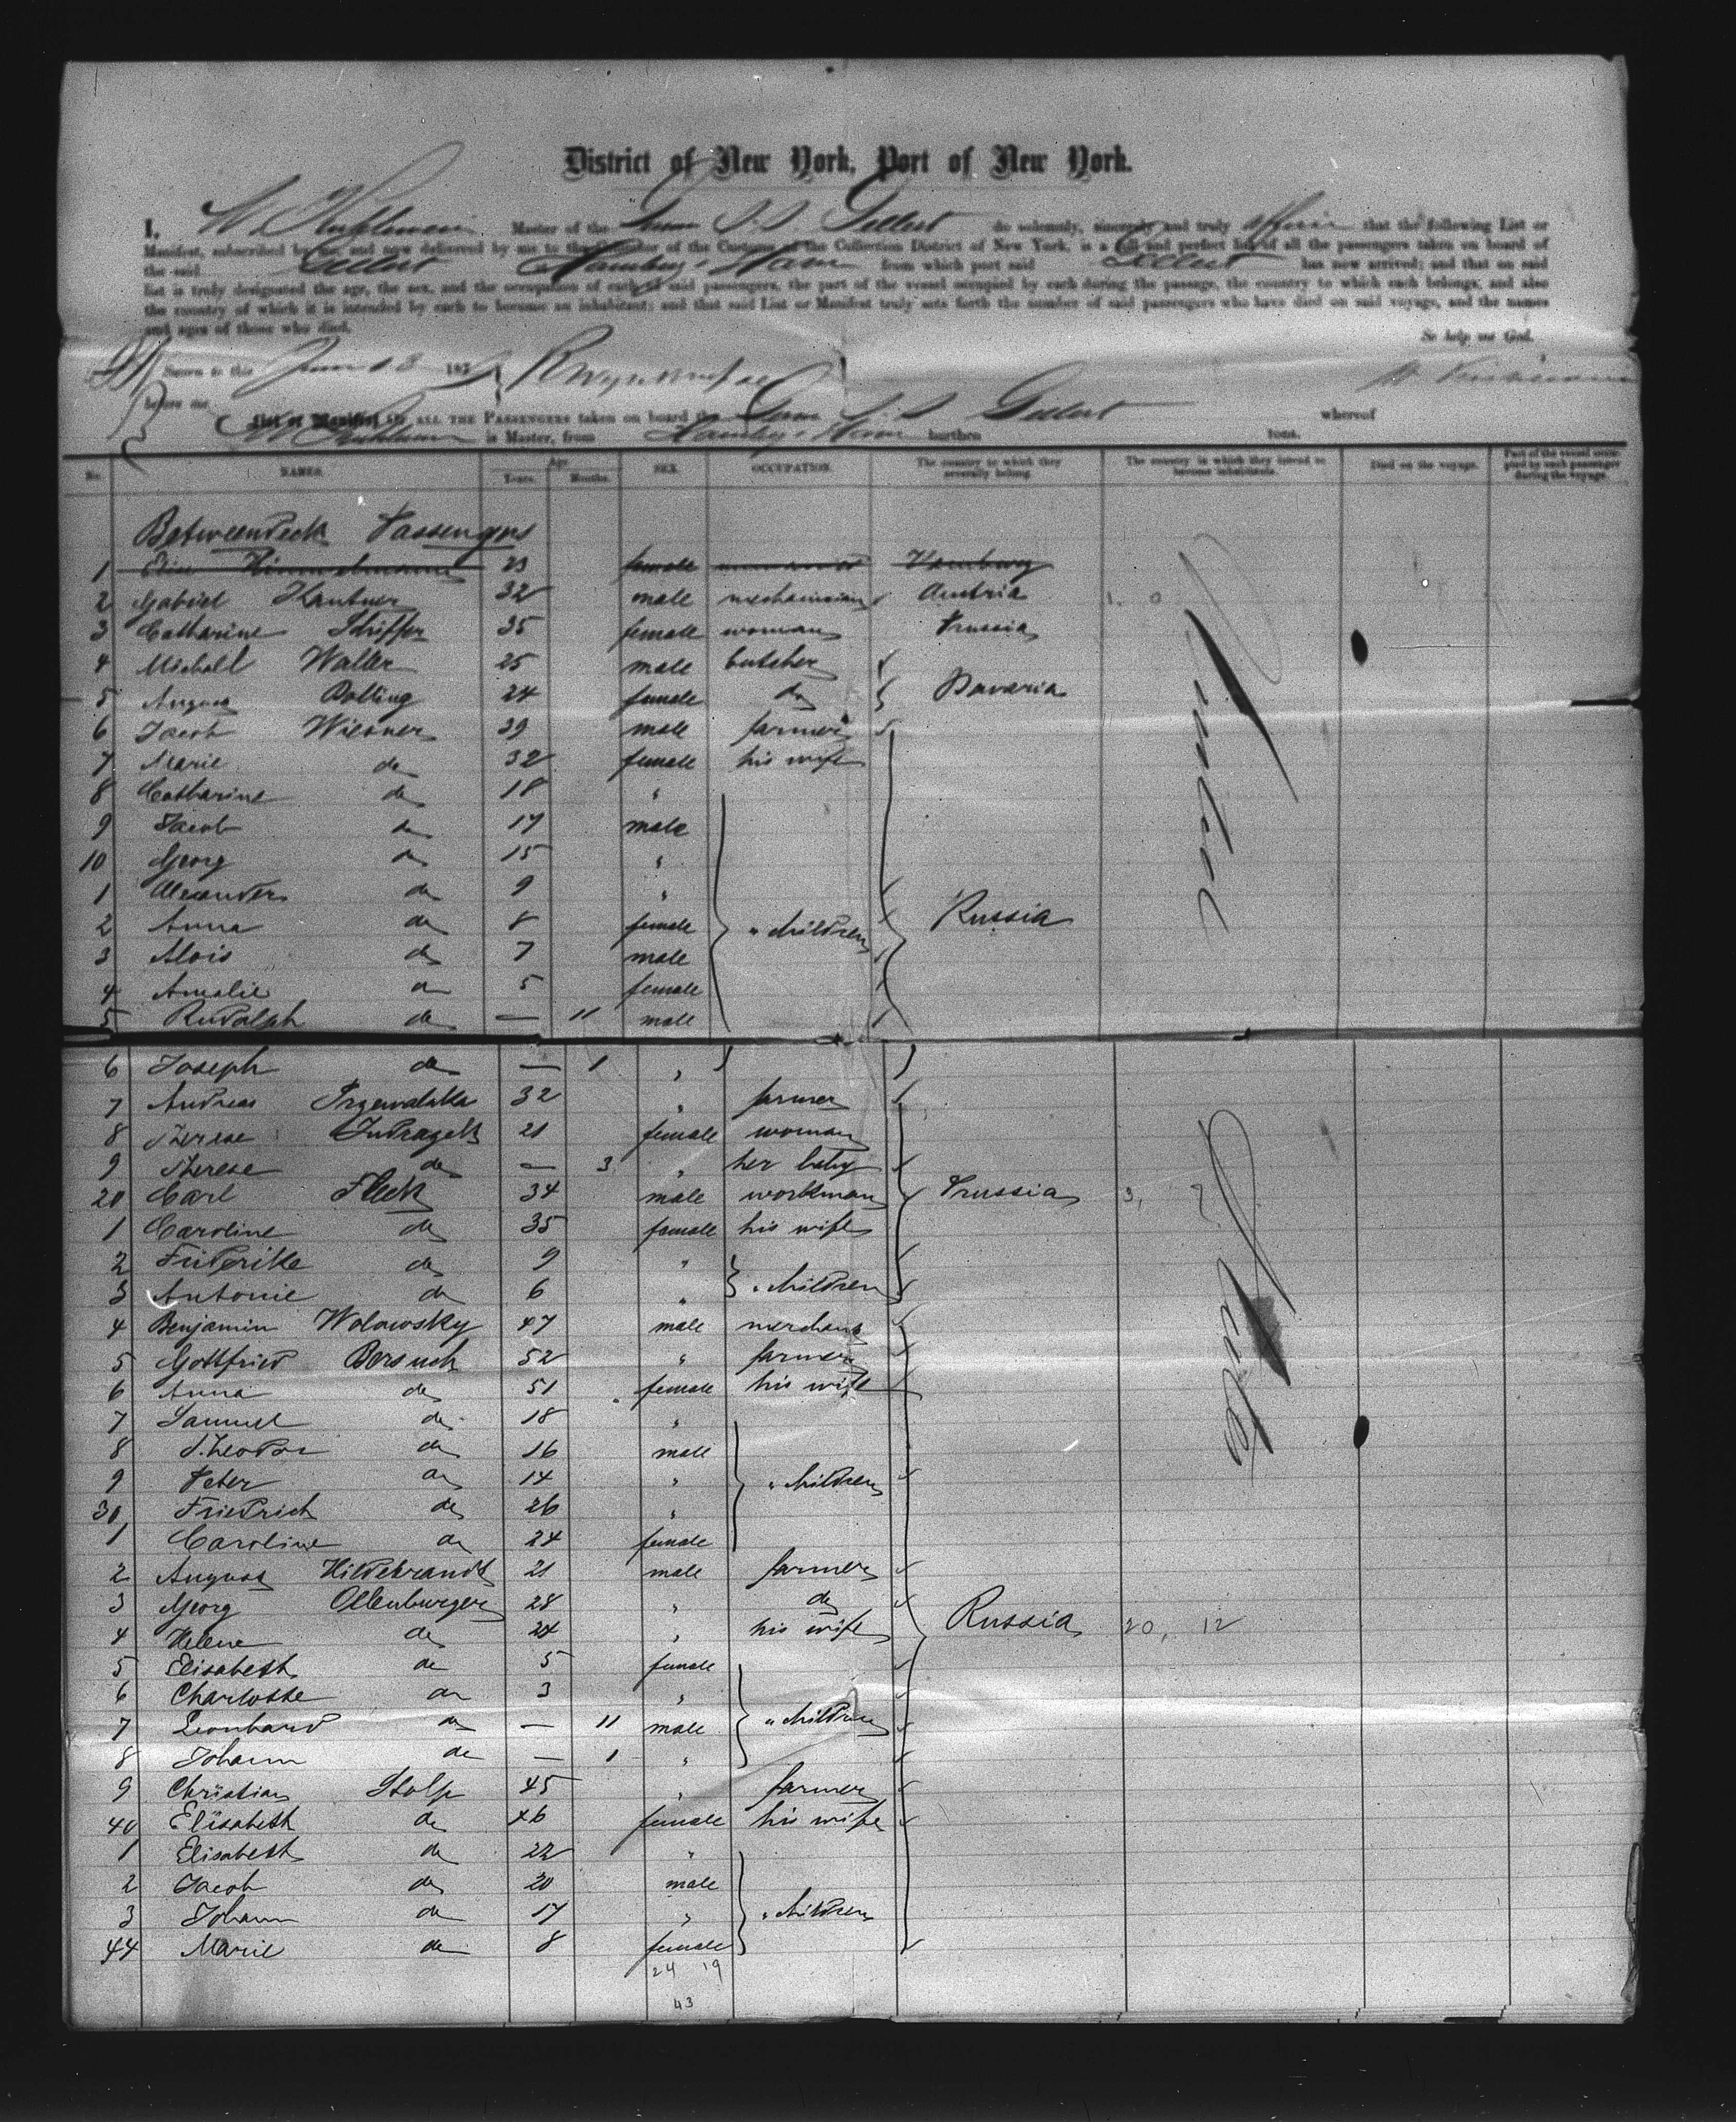 District of New York, Port of New York.
I, Master of the Gellert do solemnly, sincerely and truly that the following List or
Manifest, subscribed by me, and now delivered by me to the Collector of the Customs of the Collection District of New York, is a full and perfect list of all the passengers taken on board of
the said Gellert from which port said Gellert has now arrived; and that on said
list is truly designated the age, the sex, and the occupation of each of said passengers, the part of the vessel occupied by each during the passage, the country to which each belongs, and also
the country of which it is intended by each to become an inhabitant; and that said List or Manifest truly sets forth the number of said passengers who have died on said voyage, and the names
and ages of those who died.
So help me God.
Sworn to this June 13 187
before me
List or Manifest OF ALL THE PASSENGERS taken on board the Gellert whereof
is Master, from burthen tons.
No. NAMES. Age Years. Months. SEX. OCCUPATION. The country to which they severally belong. The country in which they intend to become inhabitants. Died on the voyage. Part of the vessel occupied by each passenger during the voyage.
Betweendeck Passengers
1 23 female Hamburg
2 Gabriel Kantner 32 male mechanician Austria 1. 0
3 Catharine Schiffer 35 female woman Prussia
4 Michall Waller 25 male butcher
5 August Bolling 24 female do Bavaria
6 Jacob Wiesner 39 male farmer
7 Marie do 32 female his wife
8 Catharine do 18 "
9 Jacob do 17 male
10 Georg do 15 "
1 Alexander do 9 "
2 Anna do 8 female " children Russia
3 Alois do 7 male
4 Amalie do 5 female
5 Rudolph do — 11 male
6 Joseph do — 1 "
7 Andreas 32 " farmer
8 Therese 21 female woman
9 Therese do — 3 " her baby
20 Carl Fleck 34 male workman Prussia 3,
1 Caroline do 35 female his wife
2 Friderike do 9 "
3 Antonie do 6 " " children
4 Benjamin Wolowsky 47 male merchant
5 Gottfried Bersuch 52 " farmer
6 Anna do 51 female his wife
7 Samuel do 18 "
8 Theodor do 16 male
9 Peter do 14 " " children
30 Friedrich do 26 "
1 Caroline do 24 female
2 August Hildebrandt 21 male farmer
3 Georg Ollenburger 28 " do
4 Helene do 24 " his wife Russia 20, 12
5 Elisabeth do 5 female
6 Charlotte do 3 "
7 Leonhard do — 11 male " children
8 Johann do — 1 "
9 Christian Stolp 45 " farmer
40 Elisabeth do 46 female his wife
1 Elisabeth do 22 "
2 Jacob do 20 male
3 Johann do 17 " " children
44 Marie do 8 female
24 19
43